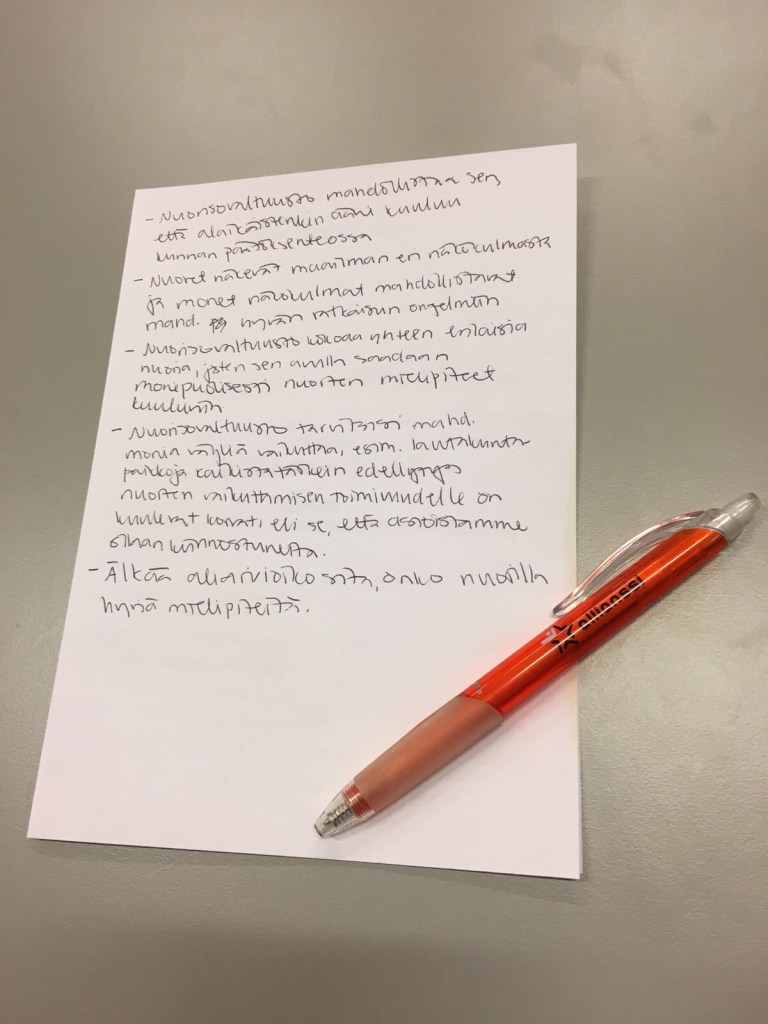 - Nuorisovaltuusto mahdollistaa sen,
että alaikäistenkin ääni kuuluu
kunnan päätöksenteossa
- Nuoret näkevät maailman eri näkökulmasta
ja monet näkökulmat mahdollistavat
mand. hyvän ratkaisun ongelmiin
- Nuorisovaltuusto kokoaa yhteen erilaisia
nuoria, joten sen avulla saadaan
monipuolisesti nuorten mielipiteet
kuuluviin
- Nuorisovaltuusto tarvitsisi mahd.
monia väyliä vaikuttaa, esim. lautakunta-
paikkoja kaikista tärkein edellytys
nuorten vaikuttamisen toimivuudelle on
kuulevat korvat, eli se, että asioistamme
ollaan kiinnostuneita.
- Älkää aliarvioiko sitä, onko nuorilla
hyviä mielipiteitä.
allianssi